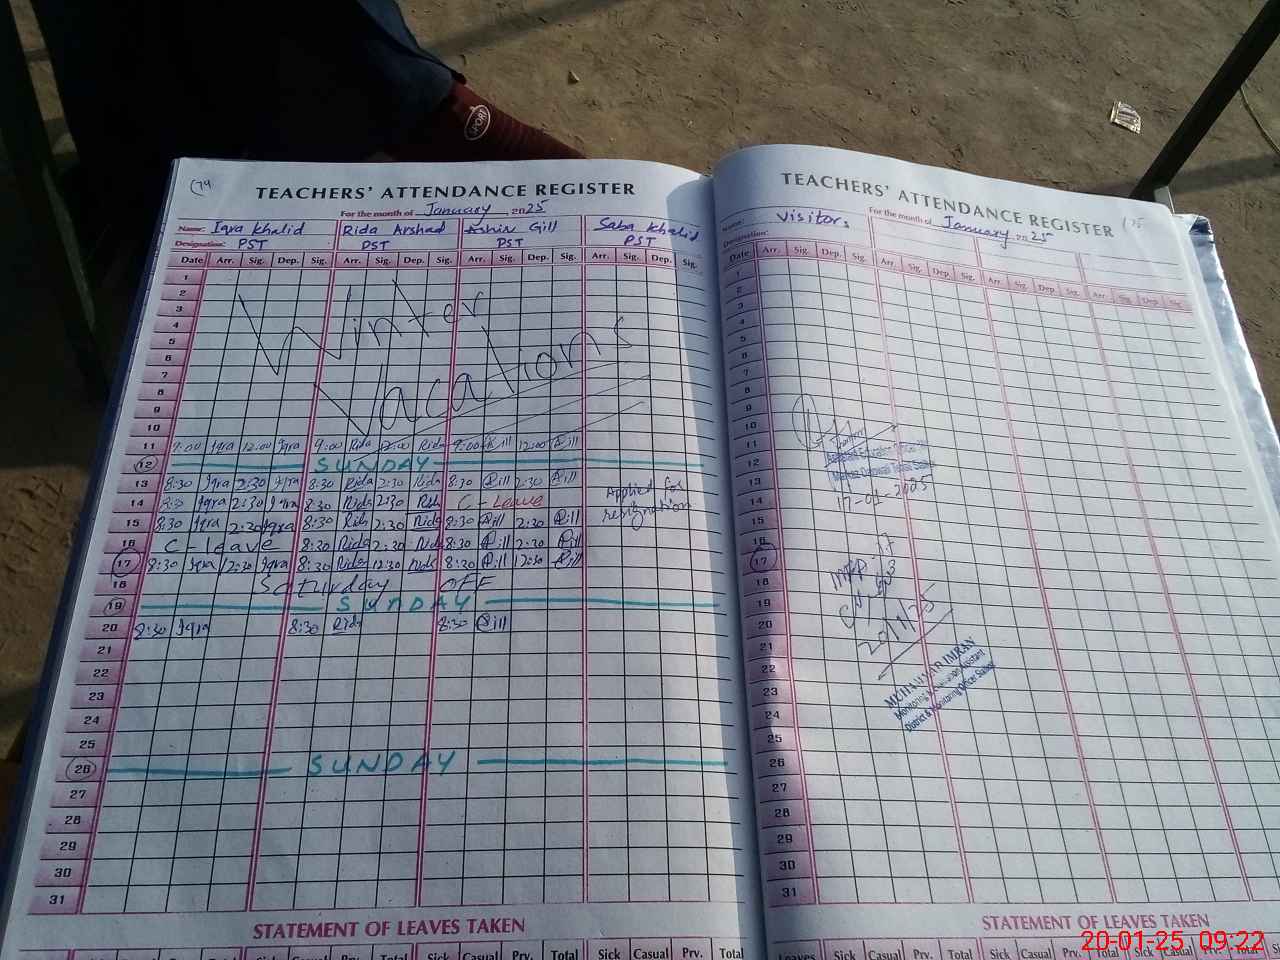 SPORT
74
TEACHERS' ATTENDANCE REGISTER
For the month of January 2025
Name: Iqra Khalid Rida Arshad Gill Saba Khalid
Designation: PST PST PST PST
Date Arr. Sig. Dep. Sig. Arr. Sig. Dep. Sig. Arr. Sig. Dep. Sig. Arr. Sig. Dep. Sig.
1
2
3
4
5
6
7
8
9
10
Winter
Vacations
11 9:00 Iqra 12:00 Iqra 9:00 Rida 12:00 Rida 9:00 Gill 12:00 Gill
12 SUNDAY
13 8:30 Iqra 2:30 Iqra 8:30 Rida 2:30 Rida 8:30 Gill 2:30 Gill
14 8:30 Iqra 2:30 Iqra 8:30 Rida 2:30 Rida C-Leave
15 8:30 Iqra 2:30 Iqra 8:30 Rida 2:30 Rida 8:30 Gill 2:30 Gill
Applied for
resignation
16 C-leave 8:30 Rida 2:30 Rida 8:30 Gill 2:30 Gill
17 8:30 Iqra 12:30 Iqra 8:30 Rida 12:30 Rida 8:30 Gill 12:30 Gill
18 Saturday OFF
19 SUNDAY
20 8:30 Iqra 8:30 Rida 8:30 Gill
21
22
23
24
25
26 SUNDAY
27
28
29
30
31
STATEMENT OF LEAVES TAKEN
Sick Casual Prv. Total Sick Casual Prv. Total Sick Casual Prv. Total Sick Casual Prv. Total
TEACHERS' ATTENDANCE REGISTER
For the month of January 2025
Name: Visitors
Designation:
Date Arr. Sig. Dep. Sig. Arr. Sig. Dep. Sig. Arr. Sig. Dep. Sig. Arr. Sig. Dep. Sig.
1
2
3
4
5
6
7
8
9
10
11
12
13
14
15
16
17
18
19
20
21
22
23
24
25
26
27
28
29
30
31
Assistant Education Officer
17-01-2025
20/1/25
MUHAMMAD IMRAN
Monitoring & Evaluation Assistant
District Monitoring Officer
STATEMENT OF LEAVES TAKEN
Leaves Sick Casual Prv. Total Sick Casual Prv. Total
20-01-25 09:22